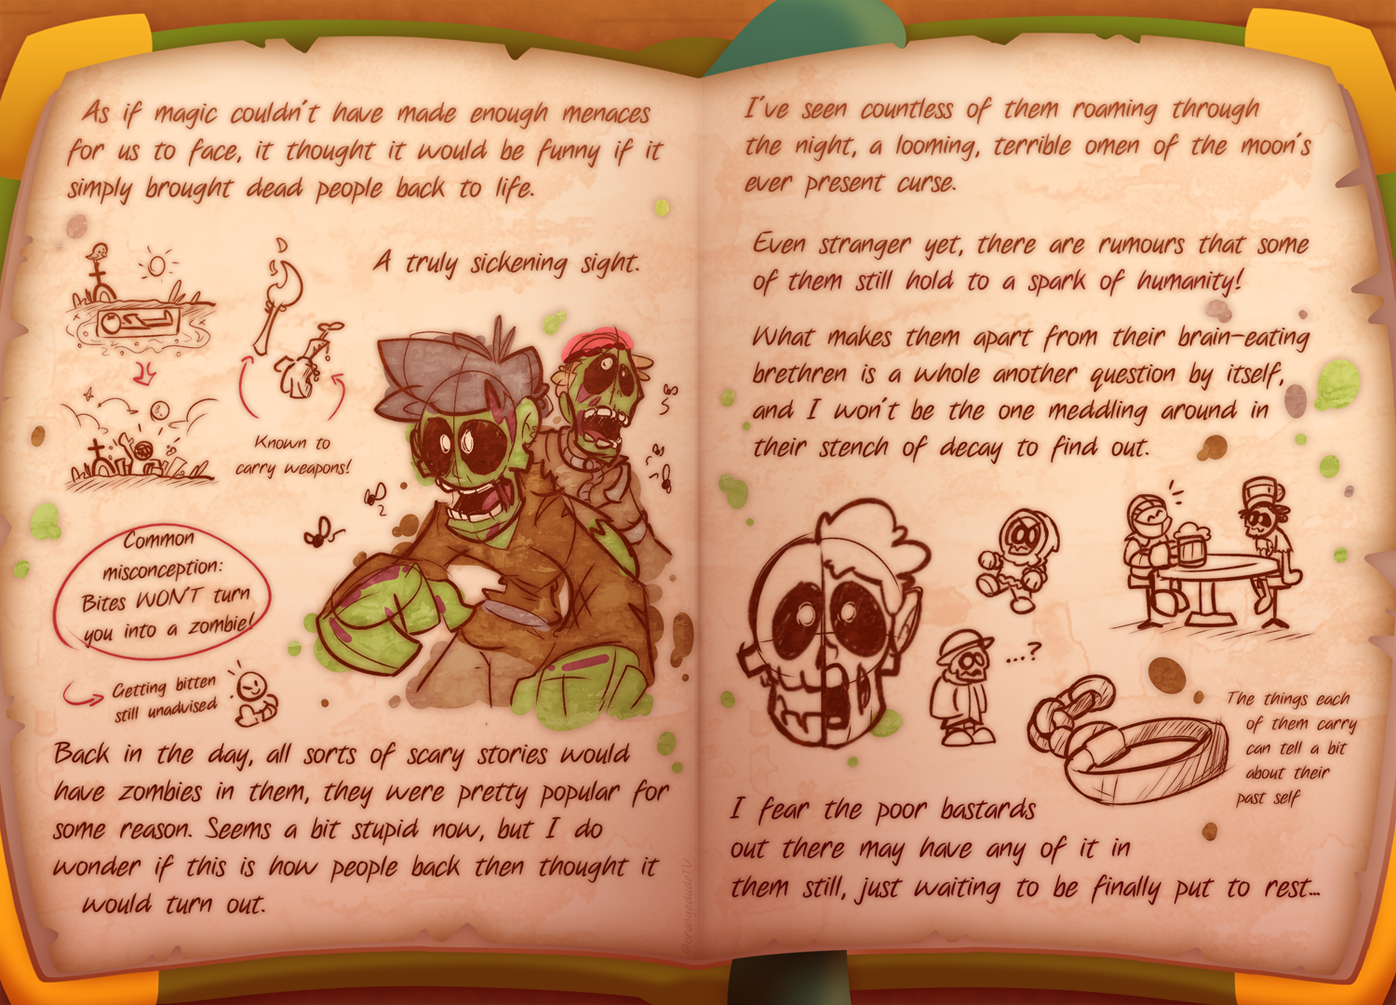 As if magic couldn't have made enough menaces
for us to face, it thought it would be funny if it
simply brought dead people back to life.
A truly sickening sight.
Known to
carry weapons!
Common
misconception:
Bites WON'T turn
you into a zombie!
Getting bitten
still unadvised
Back in the day, all sorts of scary stories would
have zombies in them, they were pretty popular for
some reason. Seems a bit stupid now, but I do
wonder if this is how people back then thought it
would turn out.
I've seen countless of them roaming through
the night, a looming, terrible omen of the moon's
ever present curse.
Even stranger yet, there are rumours that some
of them still hold to a spark of humanity!
What makes them apart from their brain-eating
brethren is a whole another question by itself,
and I won't be the one meddling around in
their stench of decay to find out.
...?
The things each
of them carry
can tell a bit
about their
past self
I fear the poor bastards
out there may have any of it in
them still, just waiting to be finally put to rest...